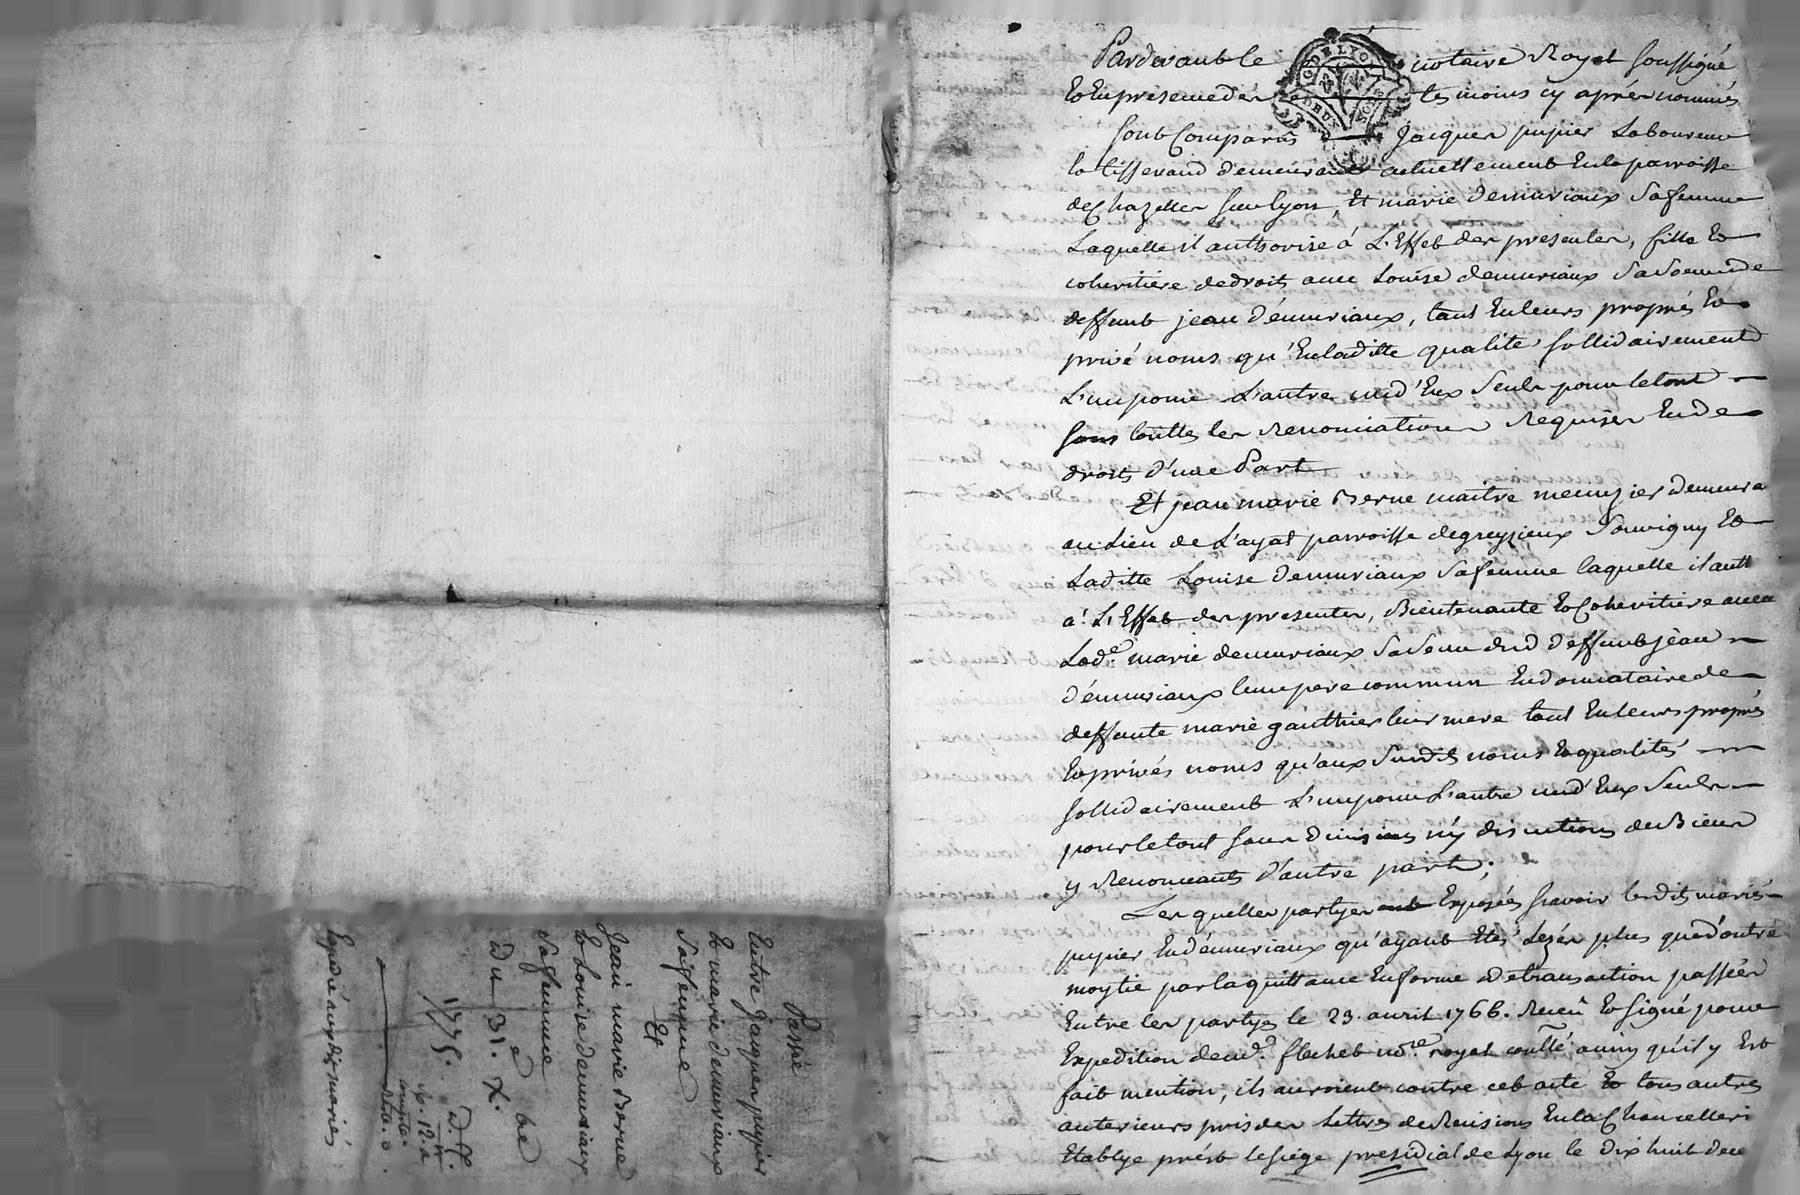 Pardevant le notaire Royal soussigné
Et En presence des temoins cy aprés nommés
sont Comparus Jacques pupier Laboureur
Et tisserand demeurant actuellement En la parroisse
de Chazelles sur Lyon, Et marie demuriaux sa femme
Laquelle il authorise á L'Effet des presentes, fille Et
coheritiére de droit avec Louise demuriaux sa soeur de
deffunt jean démuriaux, tant En leurs proprés Et
privé noms qu'En laditte qualité sollidairement
L'un pour L'autre un d'Eux seul pour le tout
sous touttes les Renonciations Requises En de
droit d'une Part
Et jean marie Berne maitre menuzier demeura
au Lieu de L'ayat parroisse de greyzieux Souvigny Et
Laditte Louise demuriaux sa femme laquelle il auth
á L'Effet des presentes, Bientenante Et Coheritiere avec
Lade. marie demuriaux sa soeur dud deffunt jean
démuriaux leur pere commun En donnataire de
deffunte marie gauthier leur mere tant En leurs proprés
Et privés noms qu'aux susdits noms Et qualités
sollidairement L'un pour L'autre un d'Eux seul
pour le tout sans divisions ny discutions de Biens
y Renonceants d'autre part;
Les quelles partyes Exposées sçavoir lesdits mariés
pupier En démuriaux qu'ayant Etés Lezés plus que d'outre
moytié par la quittance En forme de transaction passées
Entre les partyes le 23. avril 1766. Receu Et signé pour
Expedition de md. flachet nore. royal contlé ainsy qu'il y Est
fait mention, ils auroient contre cet acte Et tous autres
anterieurs pris des Lettres de Recisions En la Chancelleri
Etablye prést le siége presidial de Lyon le dix huit dec
Passé
Entre Jaques pupier
Et marie demuriaux
sa femme
Et
Jean marie Berne
Et Louise demuriaux
sa femme
Du 31. xbe
1775.
Expedié auxdits mariés